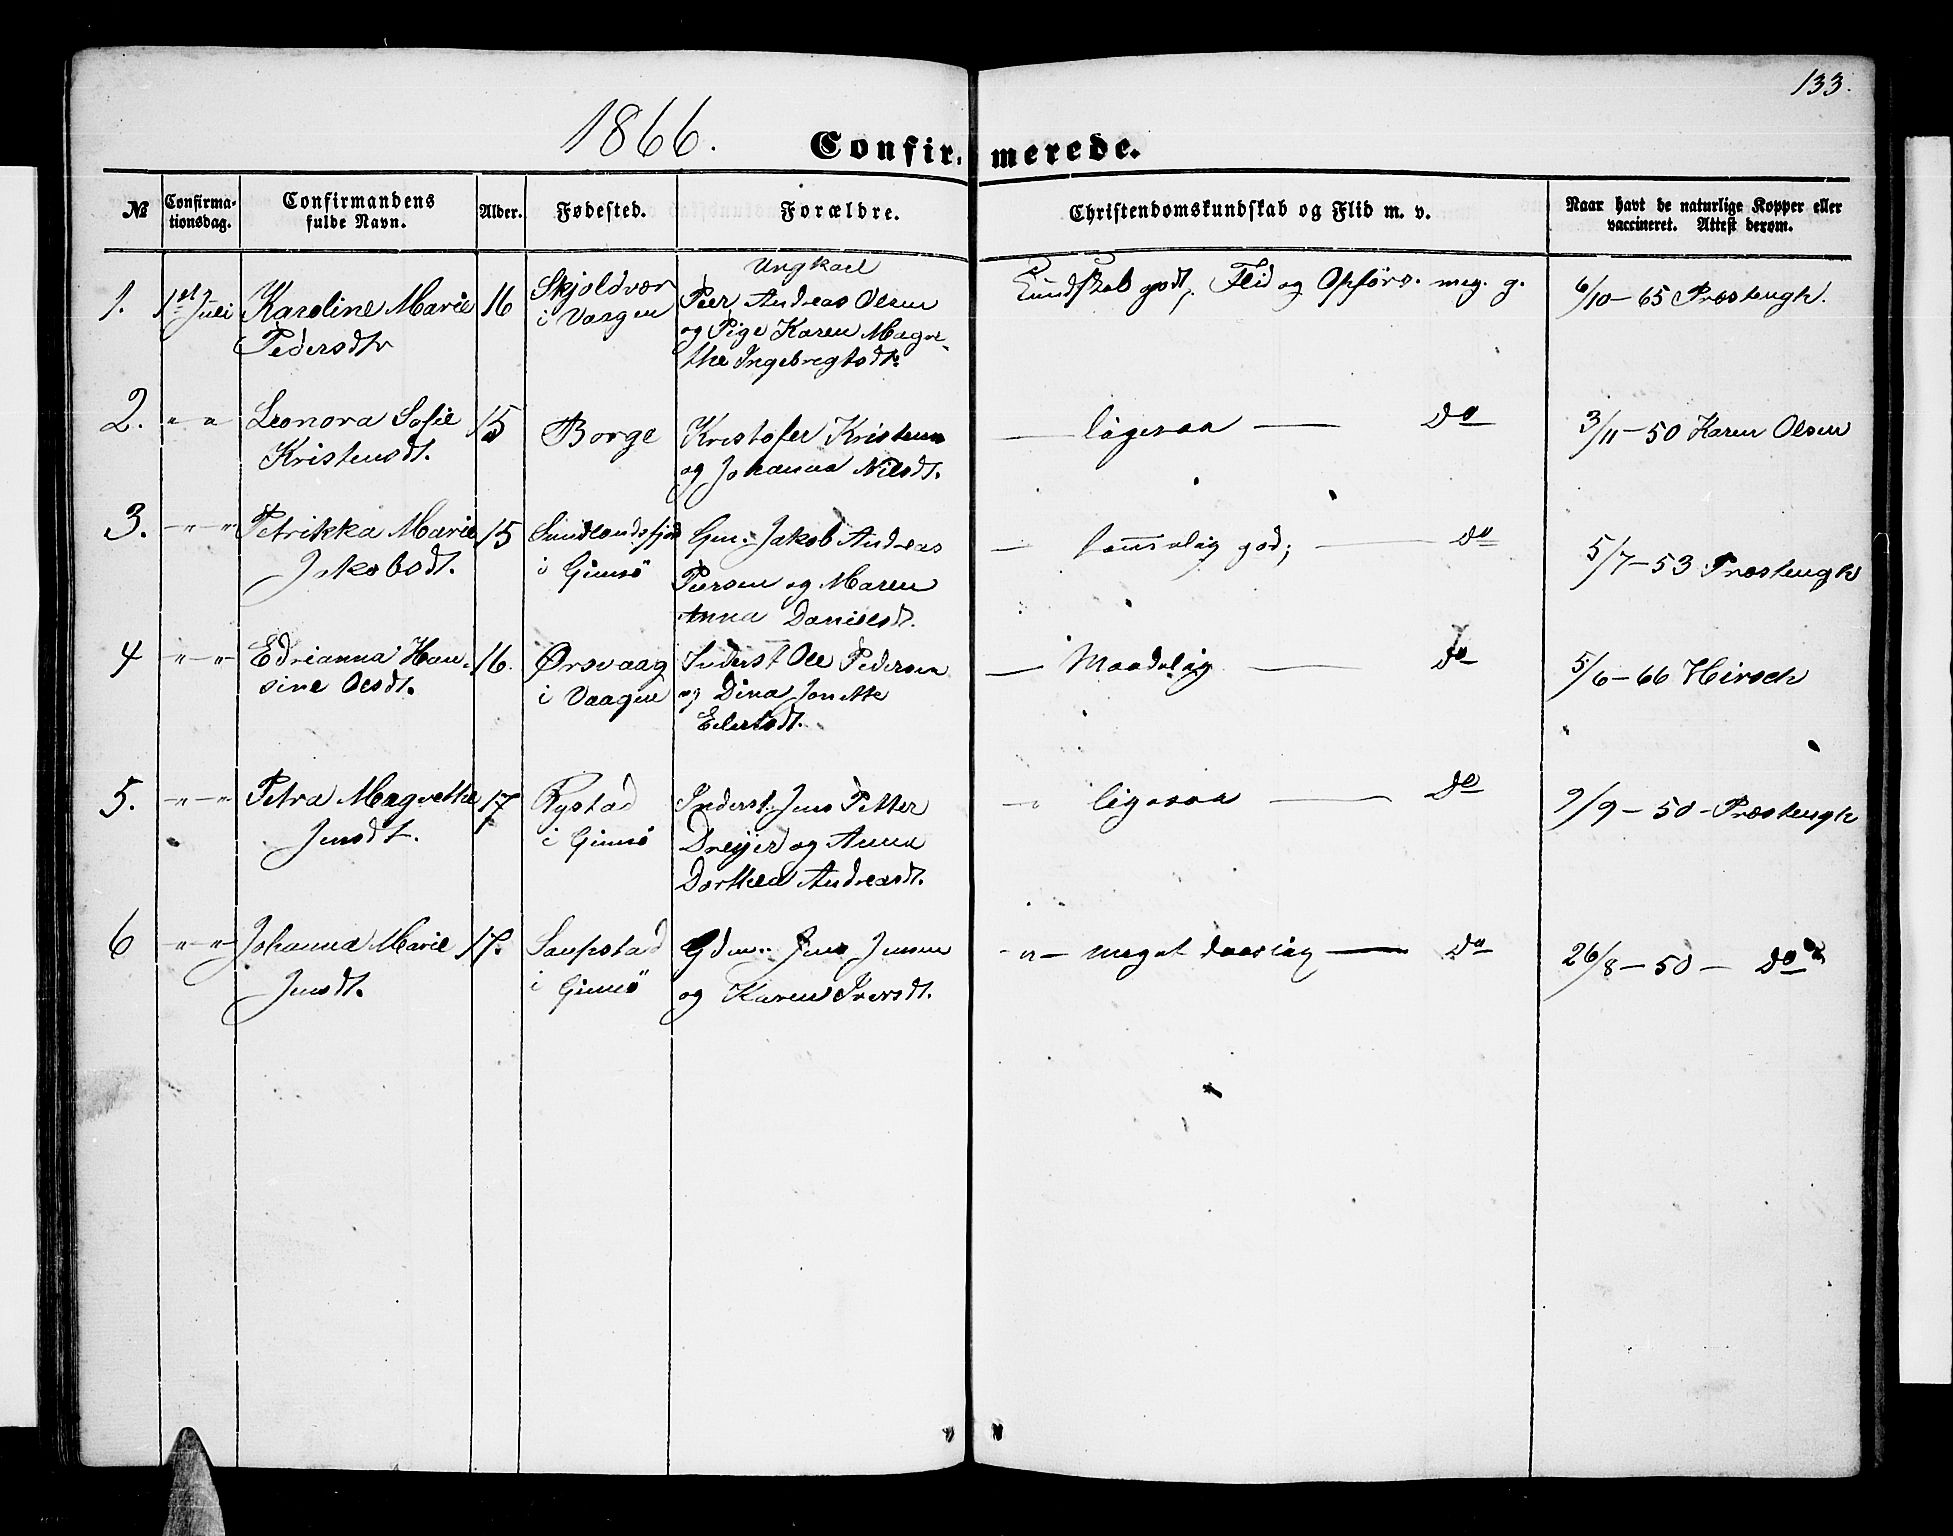 133.
1866.
Confirmerede.
№
Confirma-
tionsdag.
Confirmandens
fulde Navn.
Alder.
Fødested.
Forældre.
Christendomskundskab og Flid m. v.
Naar havt de naturlige Kopper eller
vaccineret. Attest derom.
1. 1ste Juli Karoline Marie
Pedersdtr
16
Skjoldvær
i Vaagen
Ungkarl
Peer Andreas Olsen
og Pige Karen Magre-
the Ingebregtsdt.
Kundskab godt, Flid og Opførs. meg. g.
6/10-65 Præstengh.
2. " " Leonora Sofie
Kristensdt.
15
Borge
Kristofer Kristensen
og Johanna Nilsdt.
— ligesaa — do
3/11-50 Karen Olsen
3. -"-"- Petrikka Marie
Jakobsdt.
15
Sundlandsfjord
i Gimsö
Gm. Jakob Andreas
Peersen og Maren
Anna Danielsdt.
— temmelig god; — do
5/7-53 Præstengh
4 "-"- Edrianna Han-
sine Olsdt.
16.
Ørsvaag
i Vaagen
Inderst Ole Pedersen
og Dina Jonette
Eilertsdt.
— Maadelig — do
5/6-66 Hirsch
5. -"-"- Petra Magrethe
Jensdt.
17
Rystad
i Gimsö
Inderst. Jens Petter
Dreyer og Anna
Dorthea Andreasdt.
— ligesaa — do
9/9-50 - Præstengh
6 "-"- Johanna Marie
Jensdt.
17.
Saupstad
i Gimsö
Gdm. Jens Jensen
og Karen Iversdt.
-"- meget daarlig — do
26/8-50 - do